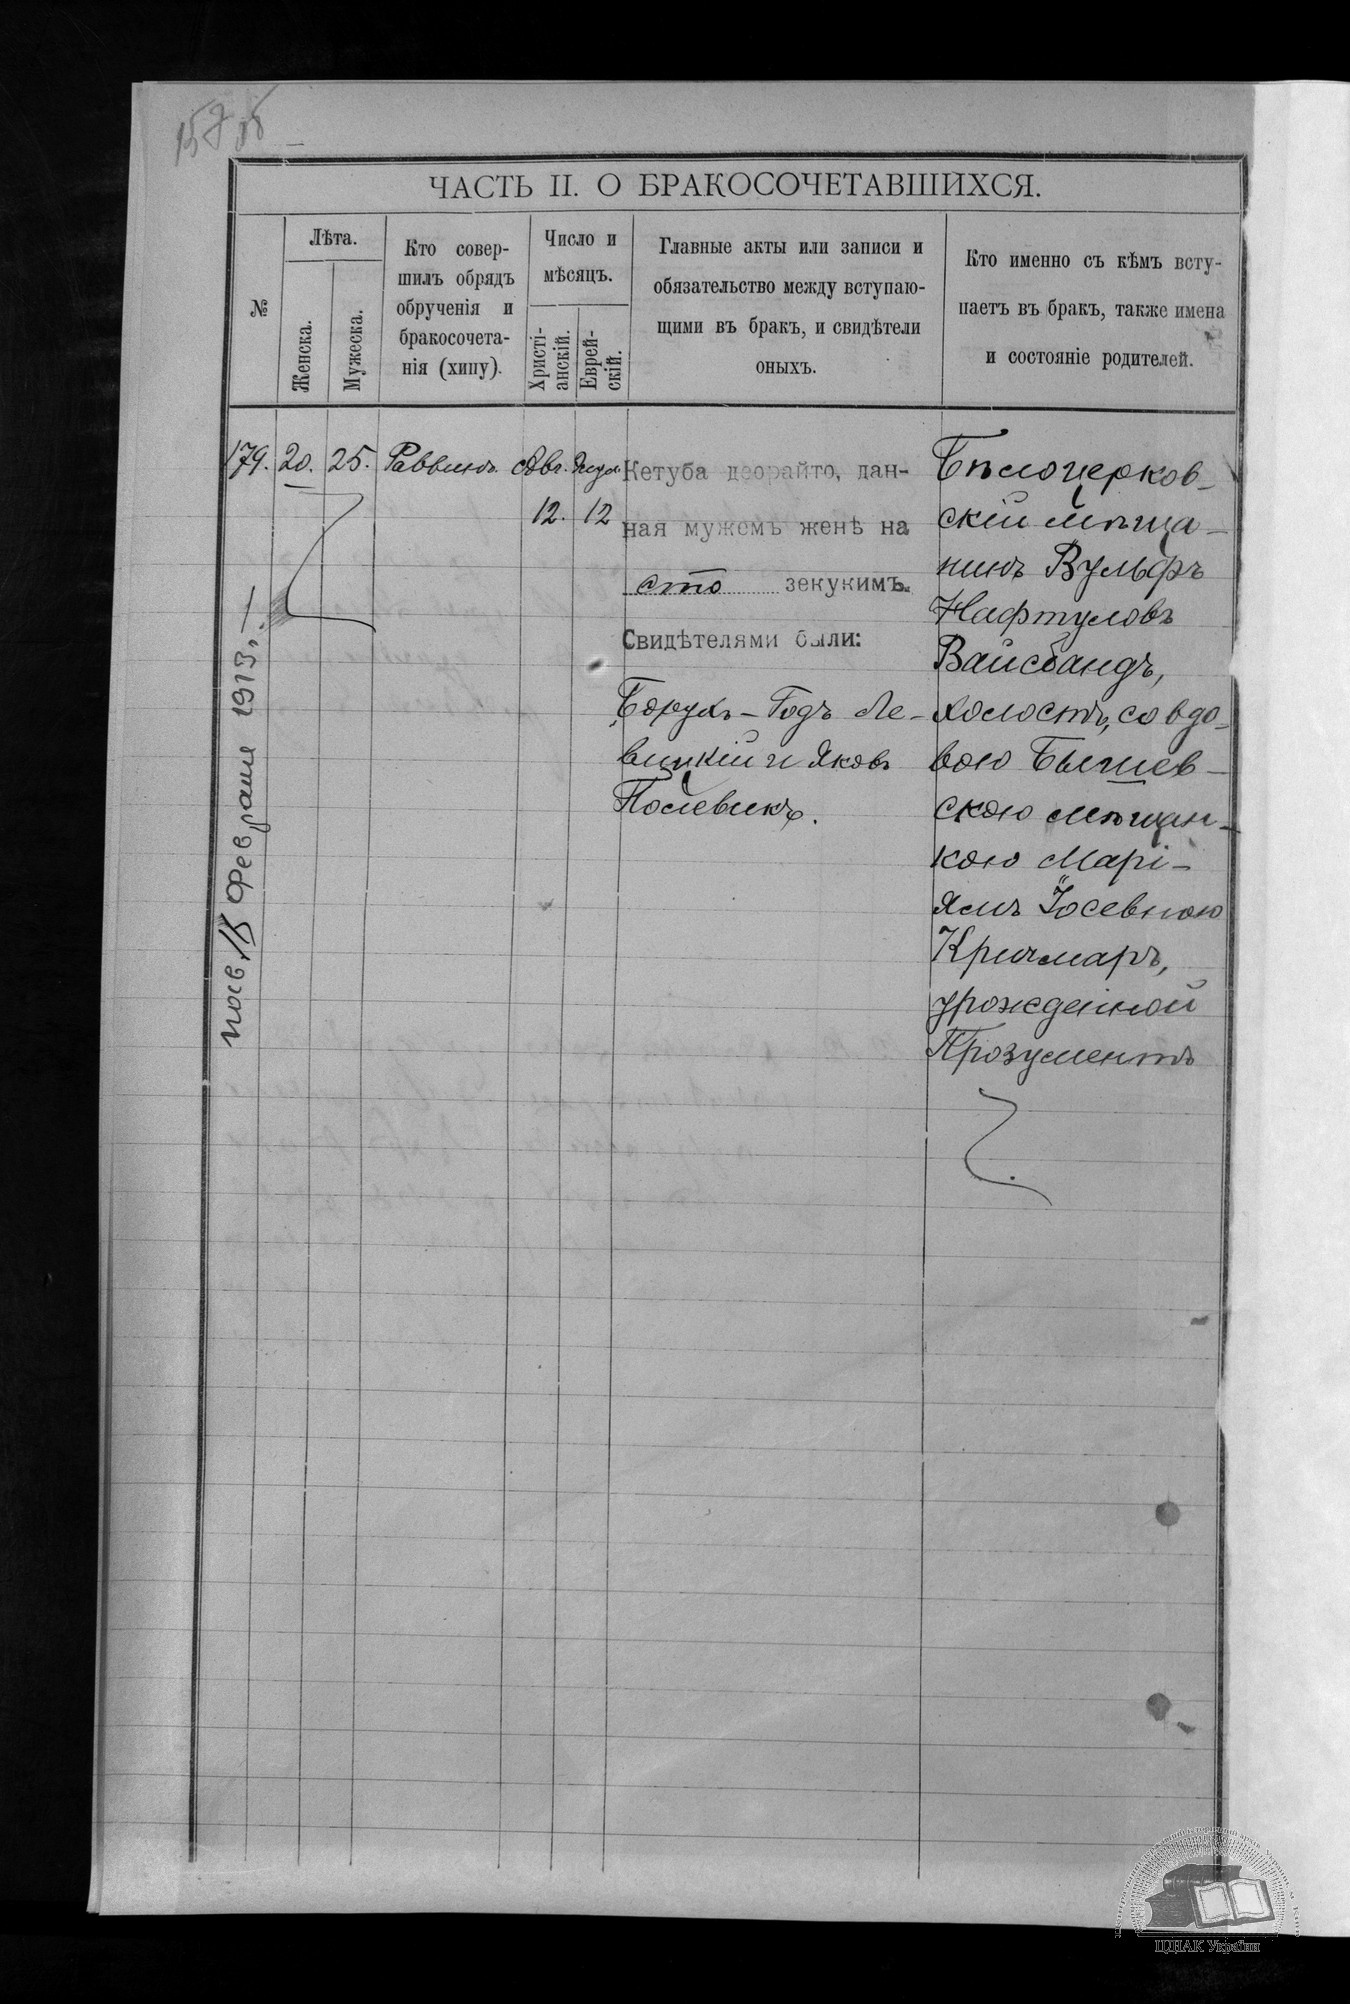 ЧАСТЬ II. О БРАКОСОЧЕТАВШИХСЯ.
№
Лѣта.
Женска.
Мужеска.
Кто совер-
шилъ обрядъ
обрученія и
бракосочета-
нія (хипу).
Число и
мѣсяцъ.
Христі-
анскій.
Еврей-
скій.
Главные акты или записи и
обязательство между вступаю-
щими въ бракъ, и свидѣтели
оныхъ.
Кто именно съ кѣмъ всту-
паетъ въ бракъ, также имена
и состояніе родителей.
179. 20. 25. Раввинъ Авг.
12. 12
Кетуба деорайто, дан-
ная мужемъ женѣ на
сто зекукимъ.
Свидѣтелями были:
Борухъ-Годъ Ле-
вицкій и Яковъ
Полевикъ.
Бѣлоцерков-
скій мѣща-
нинъ Вульфъ
Нафтуловъ
Вайсбандъ,
холостъ, со вдо-
вою Бышев-
скою мѣщан-
кою Марі-
ямъ Іосевною
Кричмаръ,
урожденной
Прозументъ
Февраля 1913 г.
ЦДІАК України